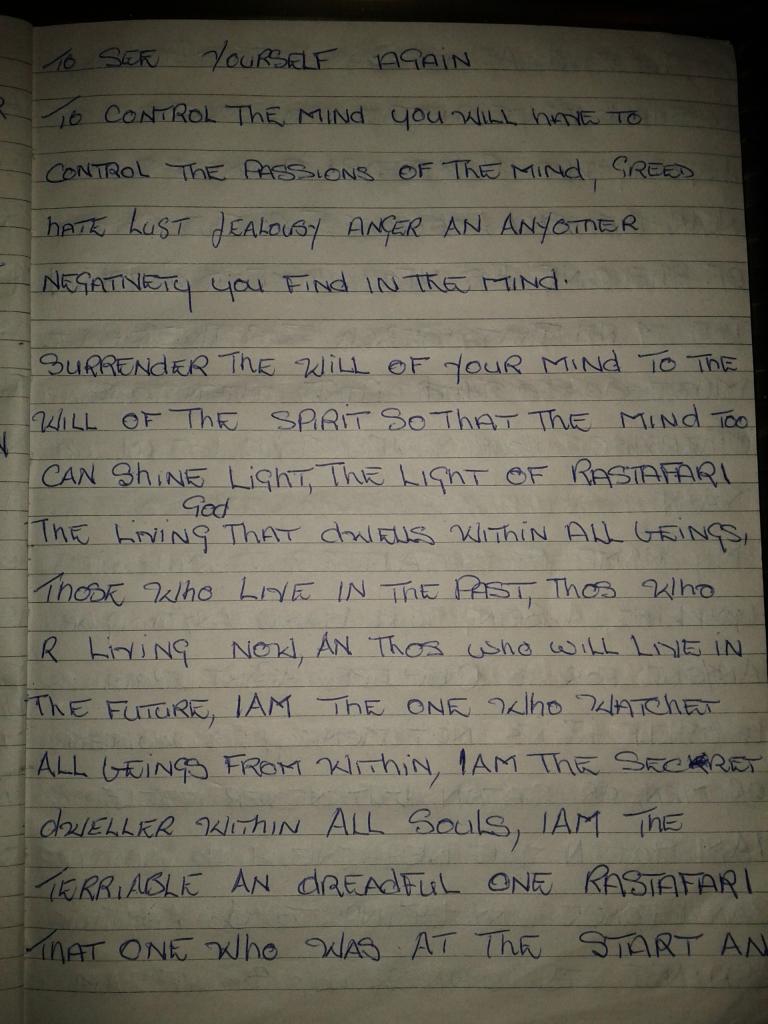 TO SEE YOURSELF AGAIN
TO CONTROL THE MINd YOU WILL HAVE TO
CONTROL THE PASSIONS OF THE MINd, GREED
HATE LUST JEALOUSY ANGER AN ANYOTHER
NEGATIVETY YOU FINd IN THE MINd.
SURRENDER THE WILL OF YOUR MINd TO THE
WILL OF THE SPIRIT SO THAT THE MINd TOO
CAN SHINE LIGHT, THE LIGHT OF RASTAFARI
God
THE LIVING THAT dWELLS WITHIN ALL BEINGS,
THOSE WHO LIVE IN THE PAST, THOS WHO
R LIVING NOW, AN THOS WHO WILL LIVE IN
THE FUTURE, IAM THE ONE WHO WATCHET
ALL BEINGS FROM WITHIN, IAM THE SECRET
dWELLER WITHIN ALL SOULS, IAM THE
TERRIABLE AN dREADFUL ONE RASTAFARI
THAT ONE WHO WAS AT THE START AN